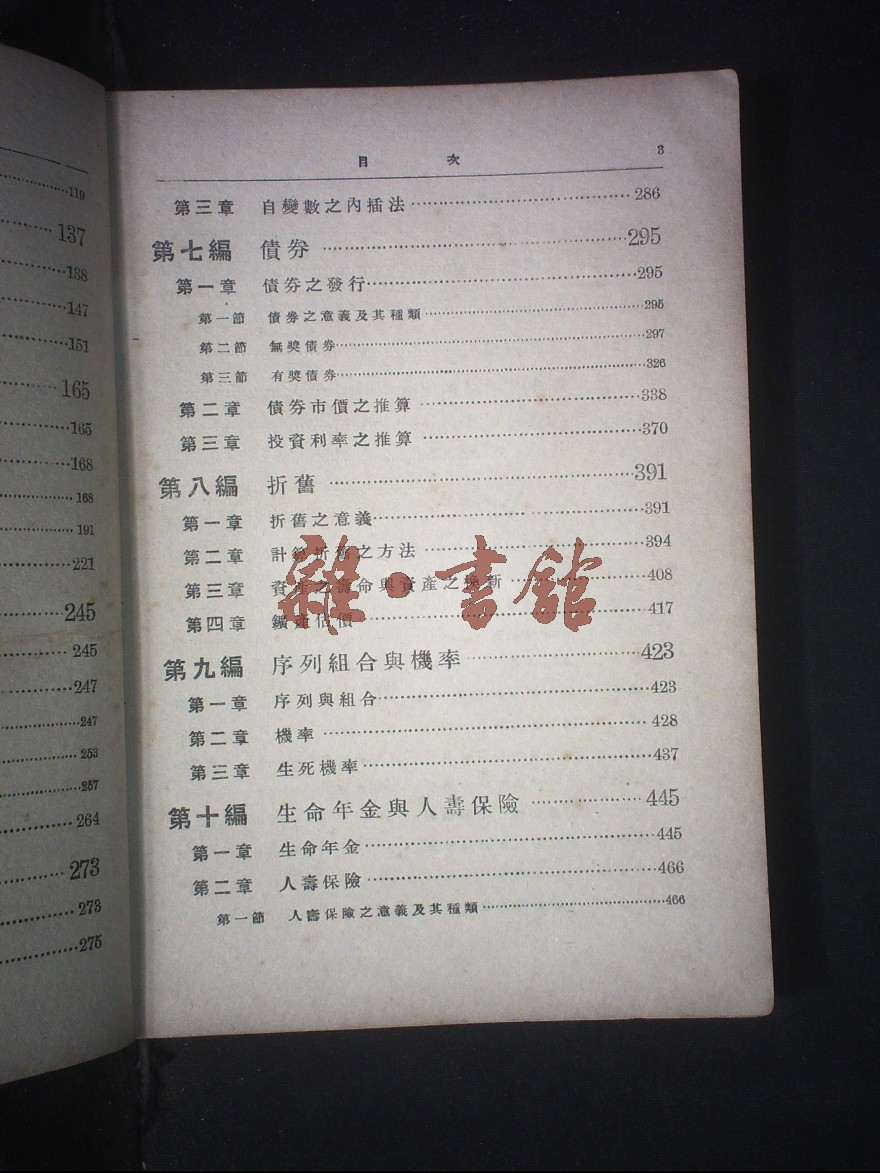 119
137
138
147
151
165
165
168
168
191
221
245
245
247
247
253
257
264
273
273
275
目 次 3
第三章 自變數之內插法 286
第七編 債券 295
第一章 債券之發行 295
第一節 債券之意義及其種類 295
第二節 無獎債券 297
第三節 有獎債券 326
第二章 債券市價之推算 338
第三章 投資利率之推算 370
第八編 折舊 391
第一章 折舊之意義 391
第二章 計算折舊之方法 394
第三章 資產之壽命與資產之換新 408
第四章 鑛產估價 417
第九編 序列組合與機率 423
第一章 序列與組合 423
第二章 機率 428
第三章 生死機率 437
第十編 生命年金與人壽保險 445
第一章 生命年金 445
第二章 人壽保險 466
第一節 人壽保險之意義及其種類 466
雜·書館